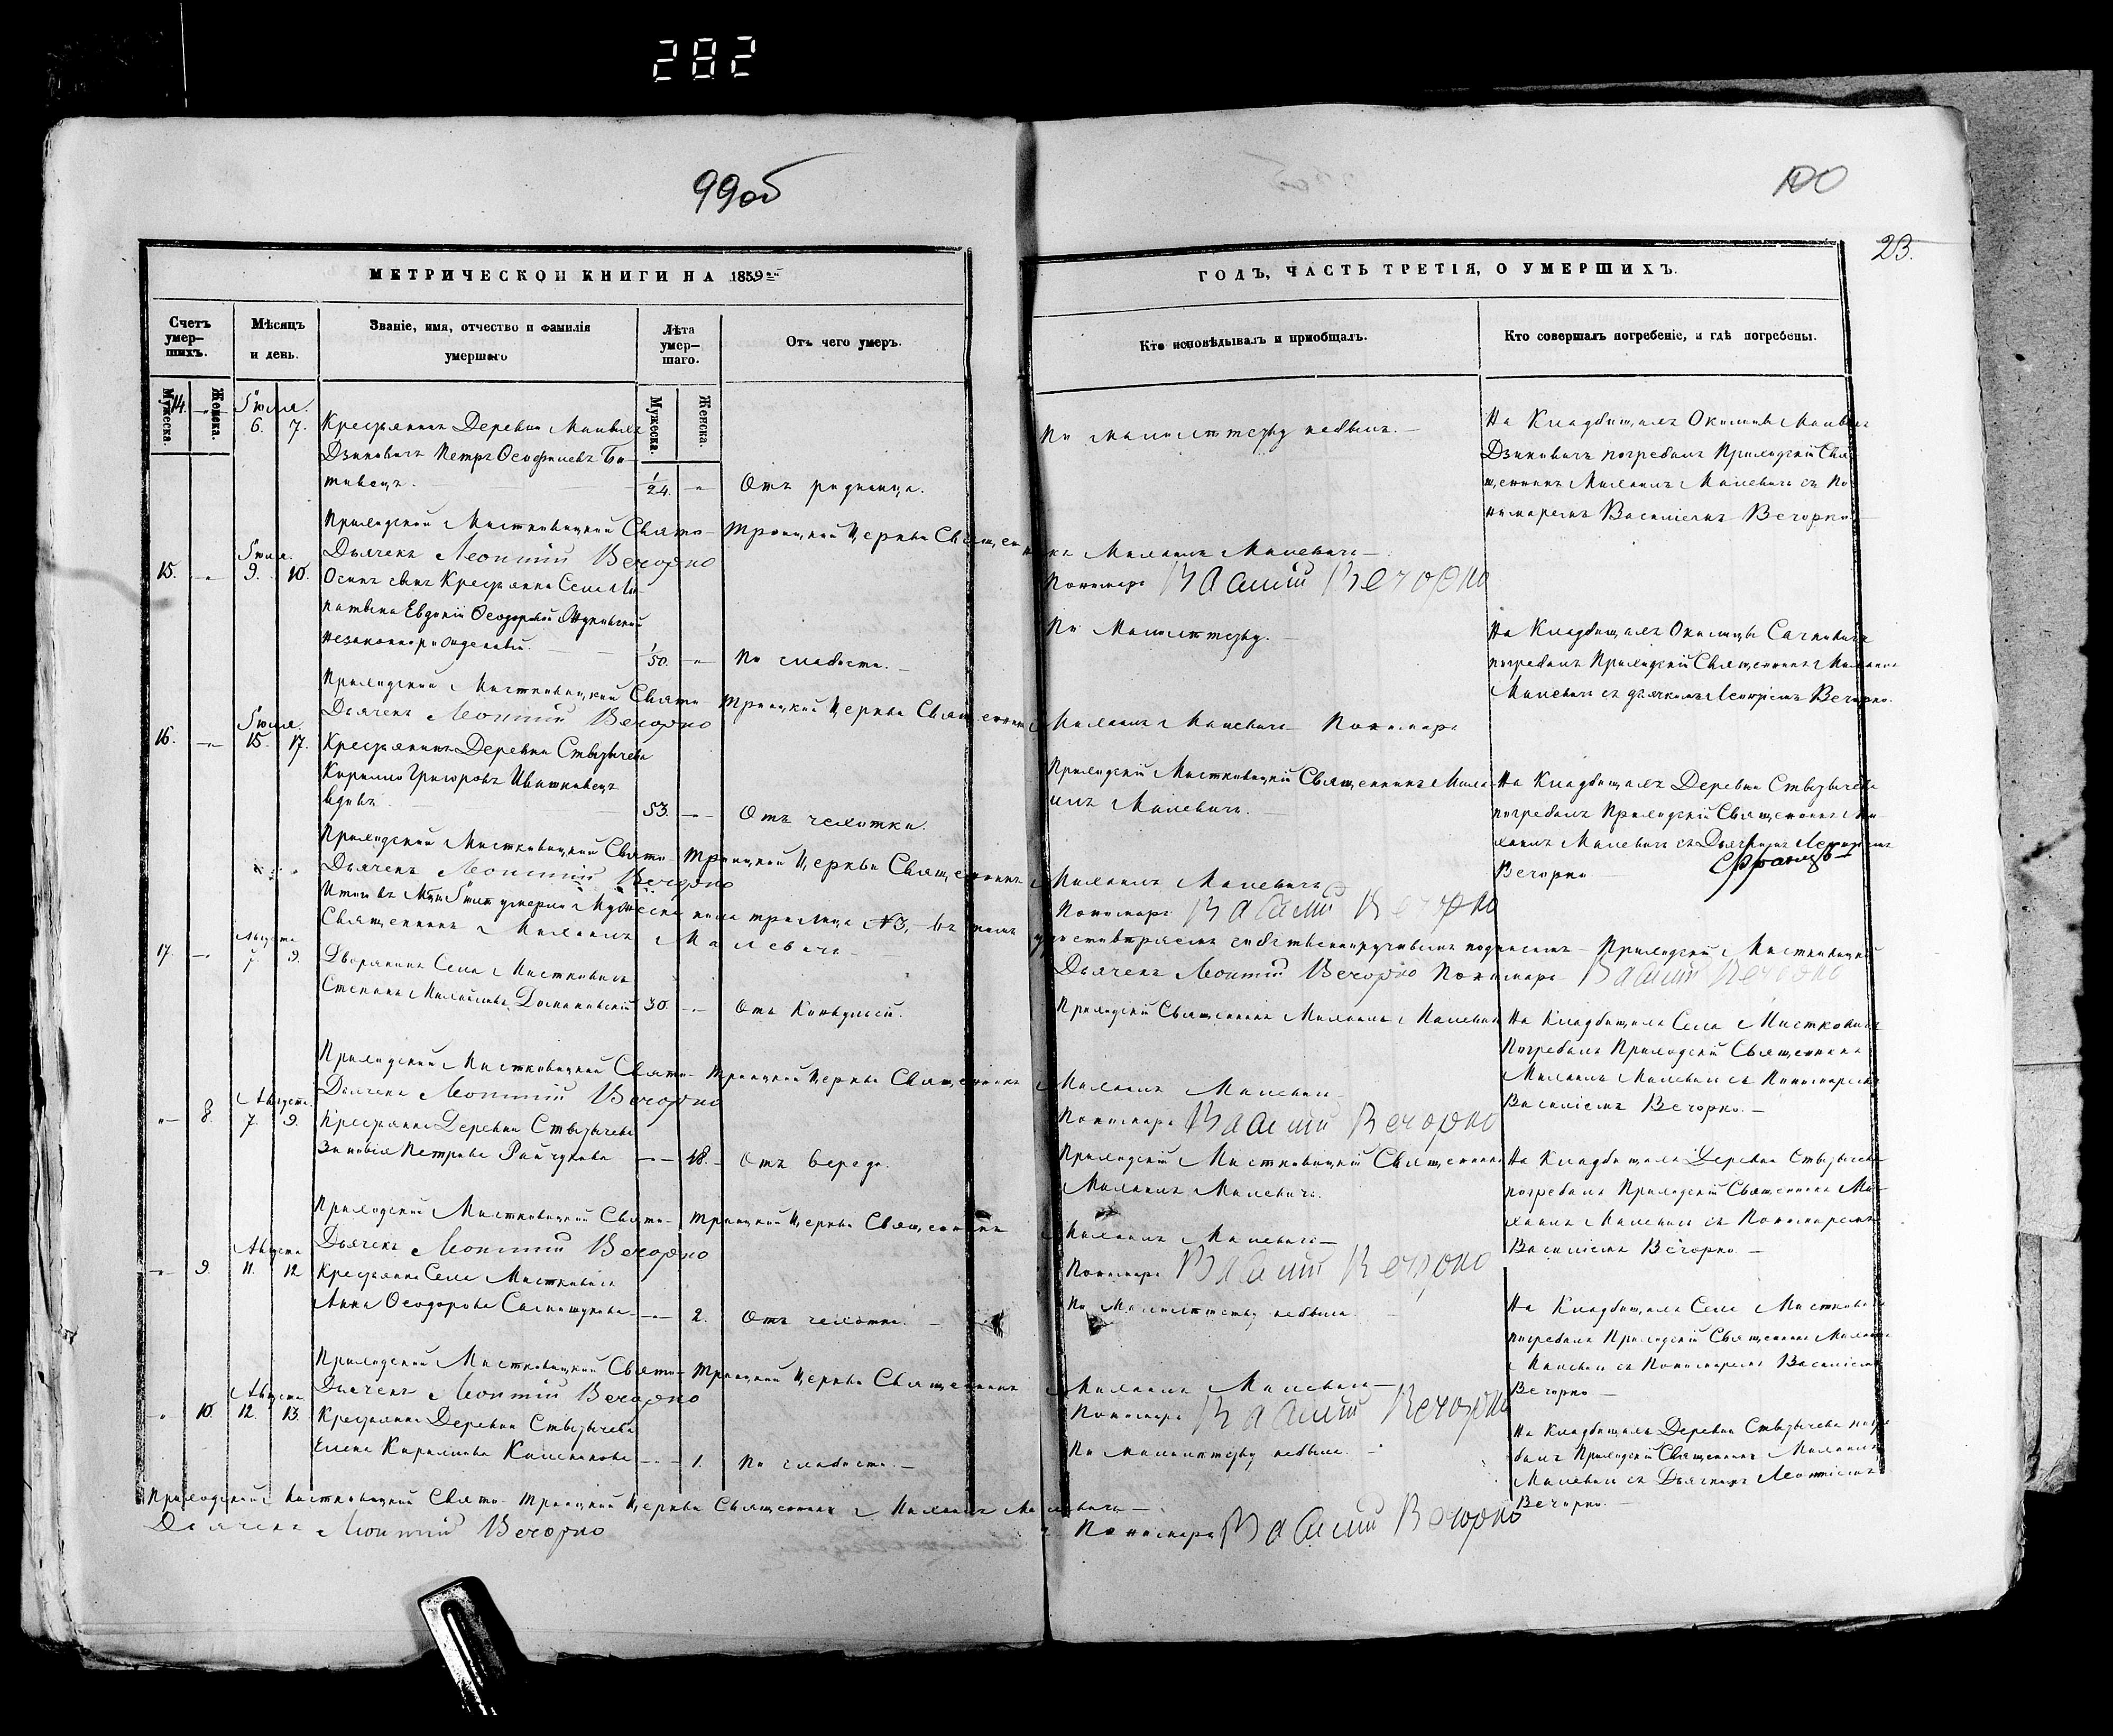 282
99об
100
23.
МЕТРИЧЕСКОЙ КНИГИ НА 1859ый
ГОДЪ, ЧАСТЬ ТРЕТІЯ, О УМЕРШИХЪ.
Счетъ умер-шихъ.
Мѣсяцъ и день.
Званіе, имя, отчество и фамилія умершаго
Лѣта умер-шаго.
Отъ чего умеръ.
Кто исповѣдывалъ и пріобщалъ.
Кто совершалъ погребеніе, и гдѣ погребены.
Мужеска.
Женска.
Мужеска.
Женска.
14. Іюля.
6. 7. Крестьянинъ Деревни
Петръ Осафиевъ
1/24. Отъ родимца.
По малолетству небылъ.
На Кладбищахъ Околицы
погребалъ Приходскій Свя-
щенникъ Михаилъ Малевичь съ По-
номаремъ Василіемъ Вечорко.
Приходский Мистковицкий Свято-Троицкой Церкви Священникъ Михаилъ Малевичь
Дьячекъ Леонтий Вечорко
Пономарь Василий Вечорко
Іюля.
15. 9. 10. сынъ Крестьянки Села
Евдокіи
незаконнорожденный.
1/50. По слабости.
По Малолетству.
На Кладбищахъ Околицы
погребалъ Приходскій Священникъ Михаилъ
Малевичь съ дьячкомъ Леонтіемъ Вечорко.
Приходский Мистковицкий Свято-Троицкой Церкви Священникъ Михаилъ Малевичь Пономарь
Дьячекъ Леонтий Вечорко
Іюля
16. 15. 17. Крестьянинъ Деревни Ствузычева
Кирилло Григоровъ
вдовъ
53. Отъ чехотки.
Приходскій Мистковицкий Священникъ Миха-
илъ Малевичь.
На Кладбищахъ Деревни
погребалъ Приходскій Священникъ Ми-
хаилъ Малевичь съ Дьячкомъ Леонтіемъ
Вечорко
Приходский Мистковицкий Свято-Троицкой Церкви Священникъ Михаилъ Малевичь
Дьячекъ Леонтий Вечорко
Пономарь Василий Вечорко
Итого въ Іюле умерло Мужеска пола три лица №3, въ томъ удостоверяемъ собственноручнымъ подписомъ Приходский Мистковицкий
Священникъ Михаилъ Малевичь
Дьячекъ Леонтий Вечорко Пономарь Василий Вечорко
Августа
17. 7. 9. Дворянинъ Села Мистковичь
Степанъ Михайловъ
30. Отъ Конвульсій.
Приходскій Священникъ Михаилъ Малевичь
На Кладбищахъ Села Мистковичь
Погребалъ Приходскій Священникъ
Михаилъ Малевичь съ Пономаремъ
Василіемъ Вечорко.
Приходский Мистковицкий Свято-Троицкой Церкви Священникъ Михаилъ Малевичь
Дьячекъ Леонтий Вечорко
Пономарь Василий Вечорко
Августа
8. 7. 9. Крестьянка Деревни
Зиновія Петрова
48. Отъ вереда.
Приходский Мистковицкий Священникъ
Михаилъ Малевичь.
На Кладбищахъ Деревни
погребалъ Приходскій Священникъ Ми-
хаилъ Малевичь съ Пономаремъ
Василіемъ Вечорко.
Приходский Мистковицкий Свято-Троицкой Церкви Священникъ Михаилъ Малевичь
Дьячекъ Леонтий Вечорко
Пономарь Василий Вечорко
Августа
9. 11. 12 Крестьянка Села Мистковичь
Анна Феодорова
2. Отъ чехотки.
По Малолетству небыла.
На Кладбищахъ Села Мистковичь
погребалъ Приходскій Священникъ Михаилъ
Малевичь съ Пономаремъ Василіемъ
Вечорко
Приходский Мистковицкий Свято-Троицкой Церкви Священникъ Михаилъ Малевичь
Дьячекъ Леонтий Вечорко
Пономарь Василий Вечорко
Августа
10. 12. 13. Крестьянка Деревни
Елена Кирилова
1. По слабости.
По малолетству небыла.
На Кладбищахъ Деревни погре-
балъ Приходскій Священникъ Михаилъ
Малевичь съ Дьячкомъ Леонтіемъ
Вечорко.
Приходский Мистковицкий Свято-Троицкой Церкви Священникъ Михаилъ Малевичь
Дьячекъ Леонтий Вечорко
Пономарь Василий Вечорко